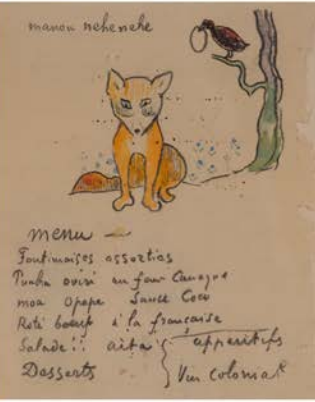 manou nchenche
menu
Fantimaises assorties
Punha oviri au four Canaque
moa opape Sauce Coco
Roti boeuf à la française
Salade!! aita
apperitifs
Desserts
Vin colonial